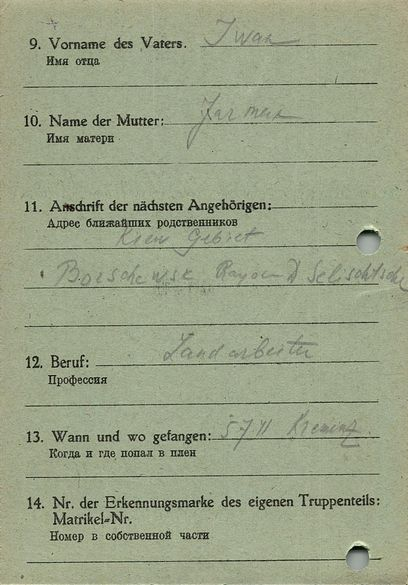 9. Vorname des Vaters. Iwan
Имя отца
10. Name der Mutter:
Имя матери
11. Anschrift der nächsten Angehörigen:
Адрес ближайших родственников
Kiew Gebiet
Rayon D
12. Beruf: Landarbeiter
Профессия
13. Wann und wo gefangen:
Когда и где попал в плен
14. Nr. der Erkennungsmarke des eigenen Truppenteils:
Matrikel-Nr.
Номер в собственной части